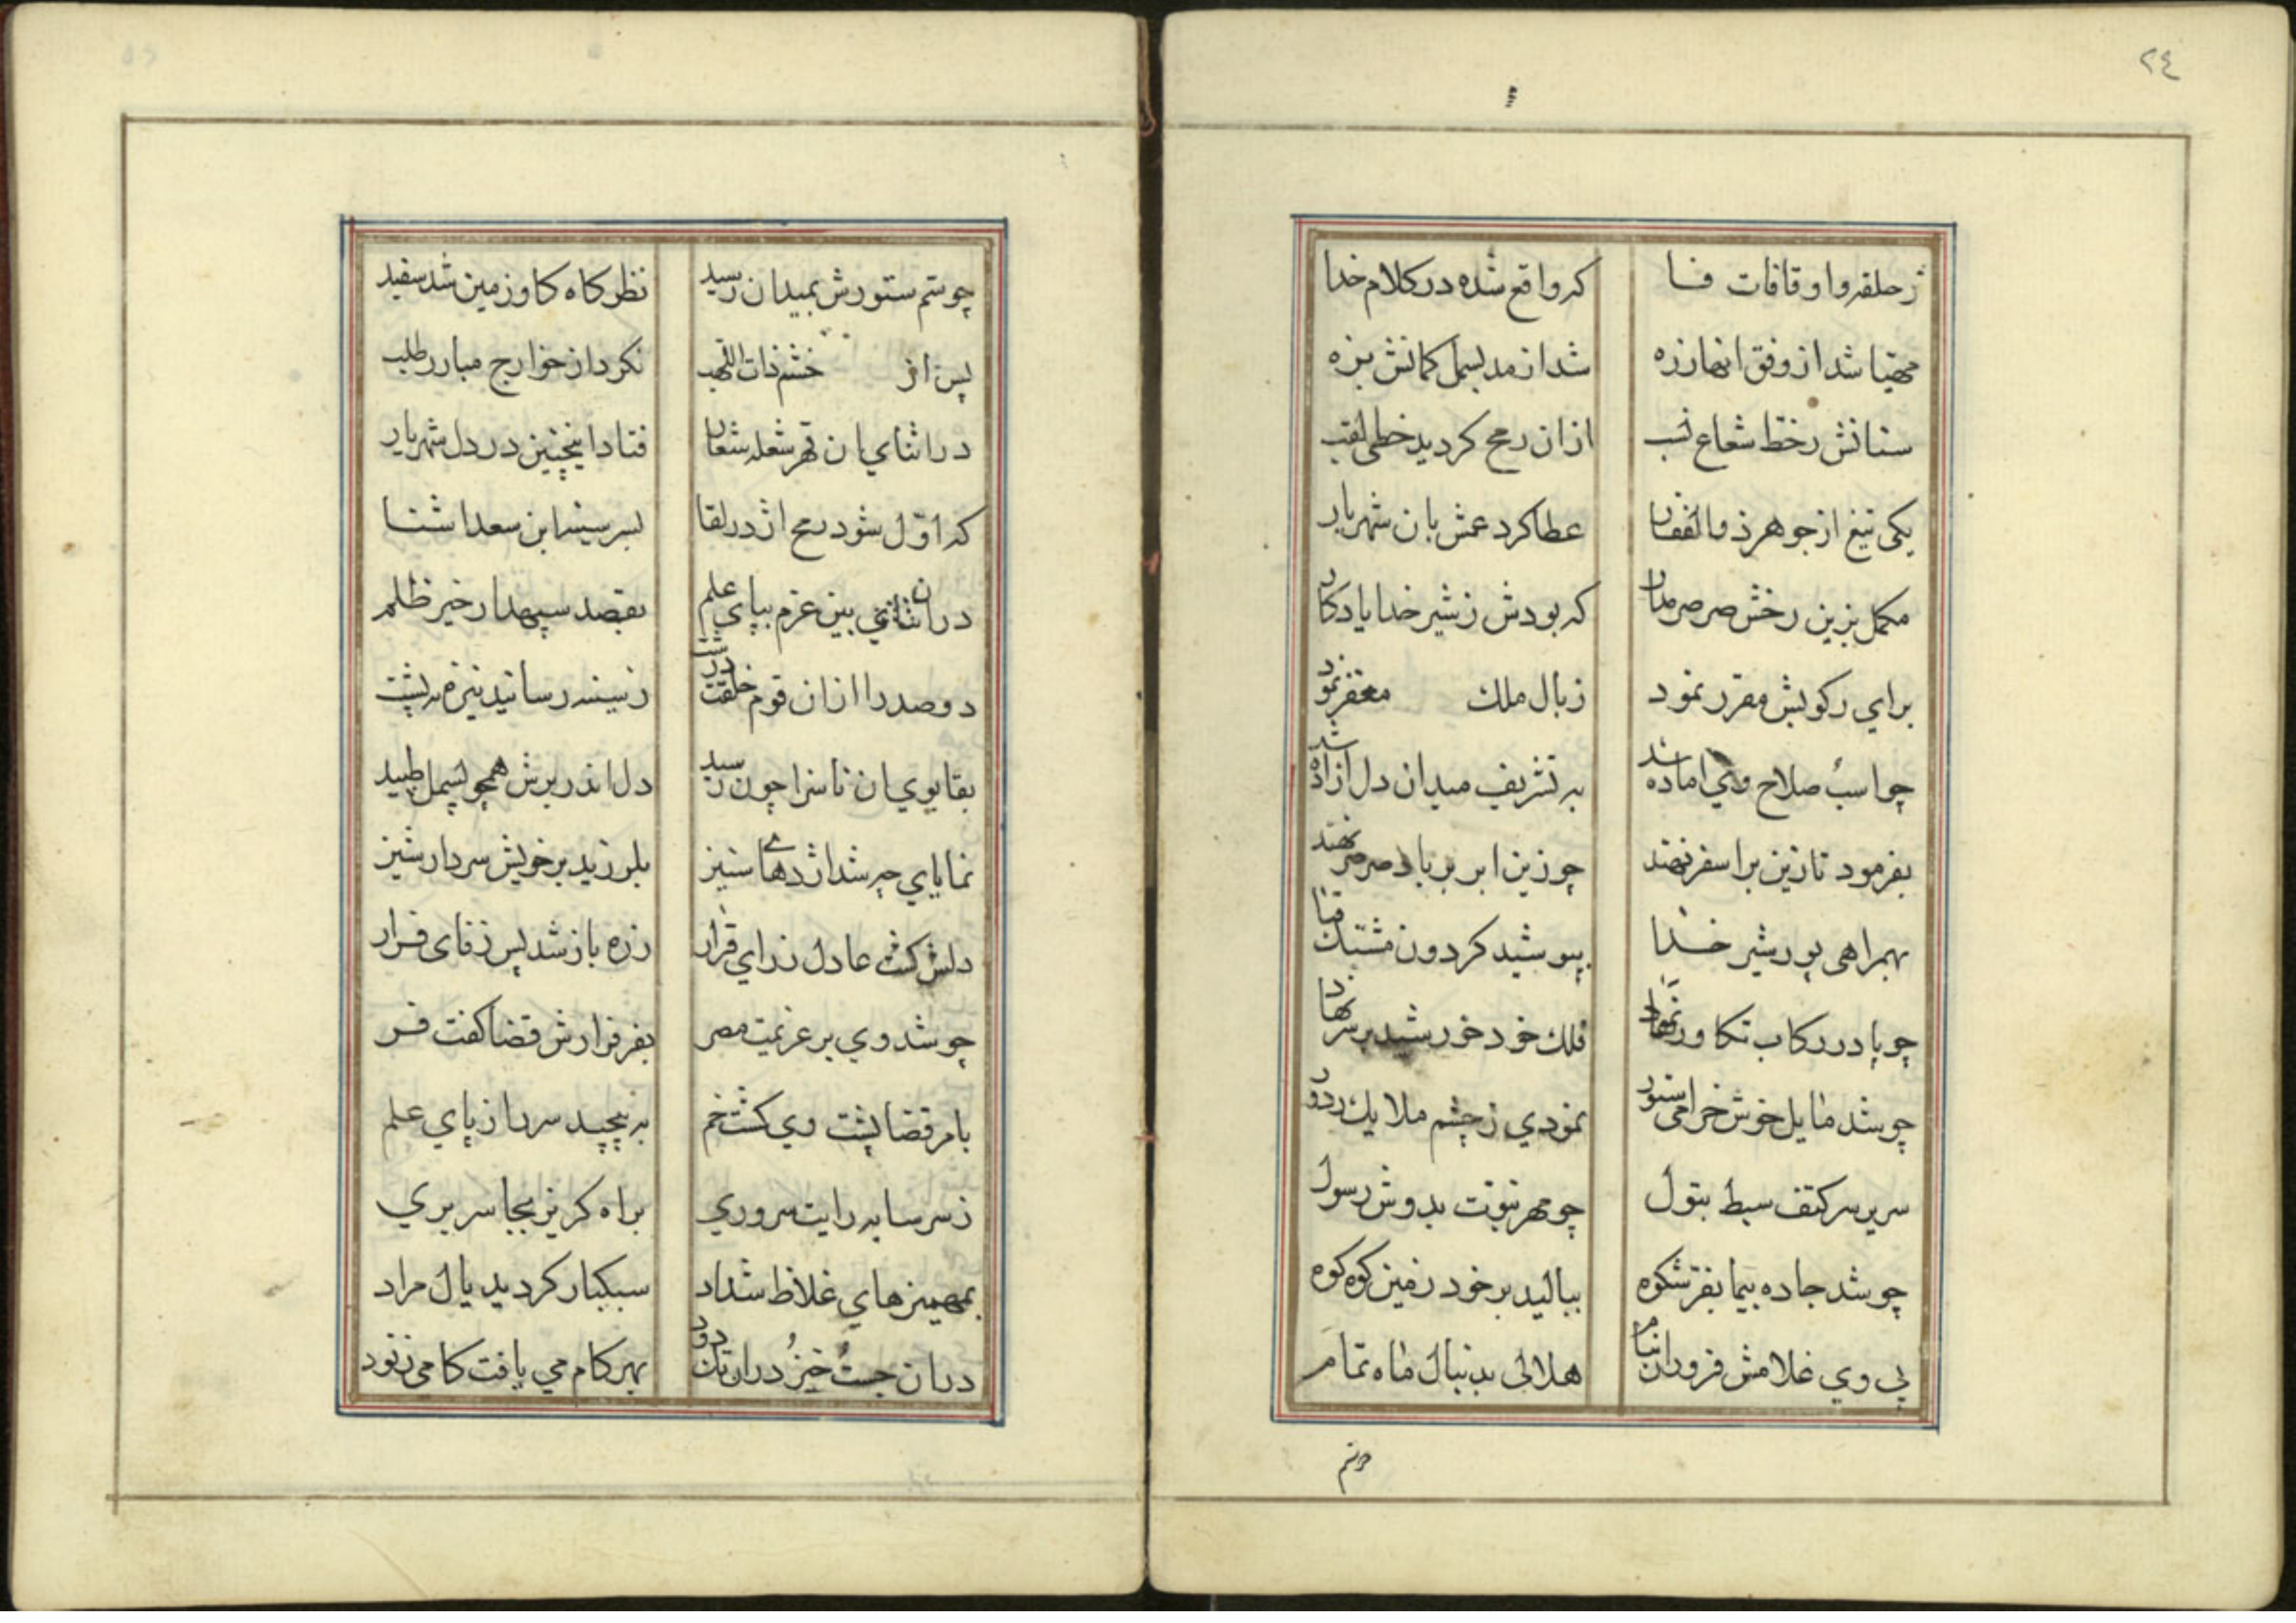 ٢٤
ز حلقه وا وقافات فا که واقع شده در کلام خدا
مهیا شد از وفق انها زره شد از مد بسمل کمانش بزه
سنانش زخط شعاع نسب ازان رمح کردید خطی لقب
یکی تیغ از جوهر ذوالفقار عطا کرد عمش بان شهریار
مکمل بزین رخش صرصر مدار که بودش ز شیر خدا یادکار
براي رکوبش مقرر نمود ز بال ملك مغفر نمود
چو اسب صلاح وي اماده شد به تشریف میدان دل ازاده شد
بفرمود تا زین براسفر نهند چو زین ابر بر باد صرصر نهند
بهمراهی پور شیر خدا بپوشید کردون مشتبك قبا
چو پا در رکاب تکاور نهاد فلك خود خورشید بر سر نهاد
چو شد مایل خوش خرامی ستور نمودي ز چشم ملایك ردور
سریر سر کتف سبط بتول چو مهر نبوت بدوش رسول
چو شد جاده پیما بفر شکوه ببالید بر خود زمین کوه کوه
پی وي غلامش فروزان هلالی بدنبال ماه تمام
چو سم ستورش بمیدان رسید نظر کاه کاو زمین شد سفید
پس از خشم ذات اللهب نکرد از خوارج مبارز طلب
در اثناي ان قهر شعله شعار فتاد اینچنین در دل شهریار
که اول شود رمح اژدر لقا بسر سینه ابن سعد اشنا
دران بین عزم بپاي علم بقصد سپهدار خیر ظلم
دو صد را ازان قوم خلقت درشت ز سینه رسانید نیزه به پشت
بقابوي ان ناسزا چون رسید دل اندر برش همچو بسمل طپید
نمایاي چه شد اژدهاي ستیز بلرزید بر خویش سردار شیز
دلش کشت عادل ز راي قرار زره باز شد پس ز فاي فرار
چو شد وي بر عزیمت مصر بفر فرارش قضا کفت فر
بامر قضا پشت وي کشت خم به پیچید سر را ز پاي علم
ز سر سایه رایت سروري براه کریز بجا سر بري
بمهمیزهاي غلاظ شداد سبکبار کردید یال مراد
دران جست خیز دران تك دود بهر کام می یافت کامی ز نود